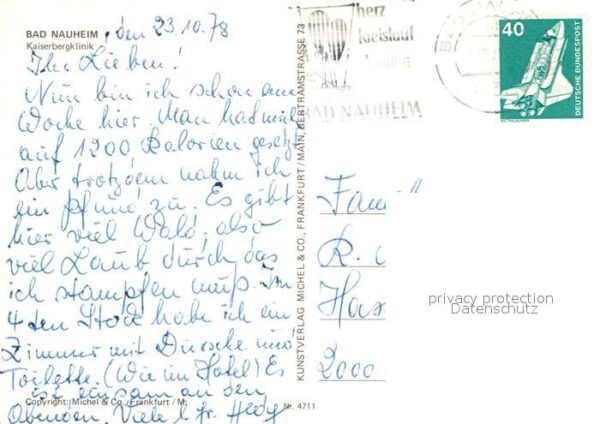 BAD NAUHEIM, den 23.10.78
Kaiserbergklinik
Ihr Lieben!
Nun bin ich schon eine
Woche hier. Man hat mich
auf 1200 Kalorien gesetzt
Aber trotzdem nahm ich
ein Pfund zu. Es gibt
hier viel Wald, also
viel Laub durch das
ich stampfen muß. Im
4 ten Stock habe ich ein
Zimmer mit Dusche und
Toilette. (Wie im Hotel) Es
ist einsam an den
Abenden. Viele l. Gr. Hedy
Copyright: Michel & Co., Frankfurt / M.
Nr. 4711
KUNSTVERLAG MICHEL & CO., FRANKFURT/MAIN, BERTRAMSTRASSE 73
herz
kreislauf
BAD NAUHEIM
40
DEUTSCHE BUNDESPOST
Fam
R.
Has
2000
privacy protection
Datenschutz